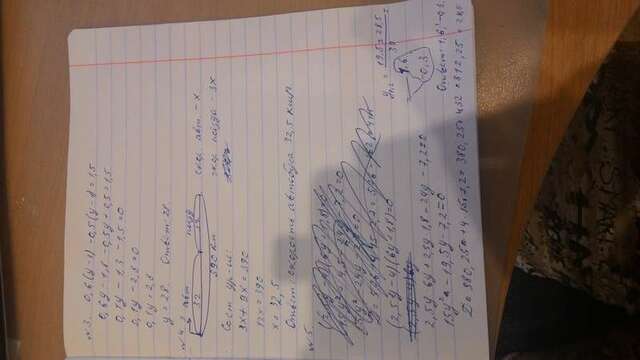 №3. 0,6(y-3) -0,5(y-1)=1,5
0,6y - 1,8 - 0,5y + 0,5 = 1,5
0,1y - 1,3 - 1,5 = 0
0,1y - 2,8 = 0
0,1y = 2,8
y = 28. Ответ: 28.
№4.
авт поезд
390 км
скор. авт. - x
скор поезда - 3x
Сост ур-ие:
3x + 9x = 390
12x = 390
x = 32,5
Ответ: скорость автобуса 32,5 км/ч.
№5.
(2,5y-4)(6y+1,8)=0
2,5y·6y+2,5y·1,8-24y-7,2=0
15y² - 19,5y - 7,2=0
D= 380,25+4·15·7,2= 380,25+432=812,25 = 28,5
y1,2 = 19,5±28,5 / 30 =
1,6
-0,3
Ответ: 1,6; -0,3